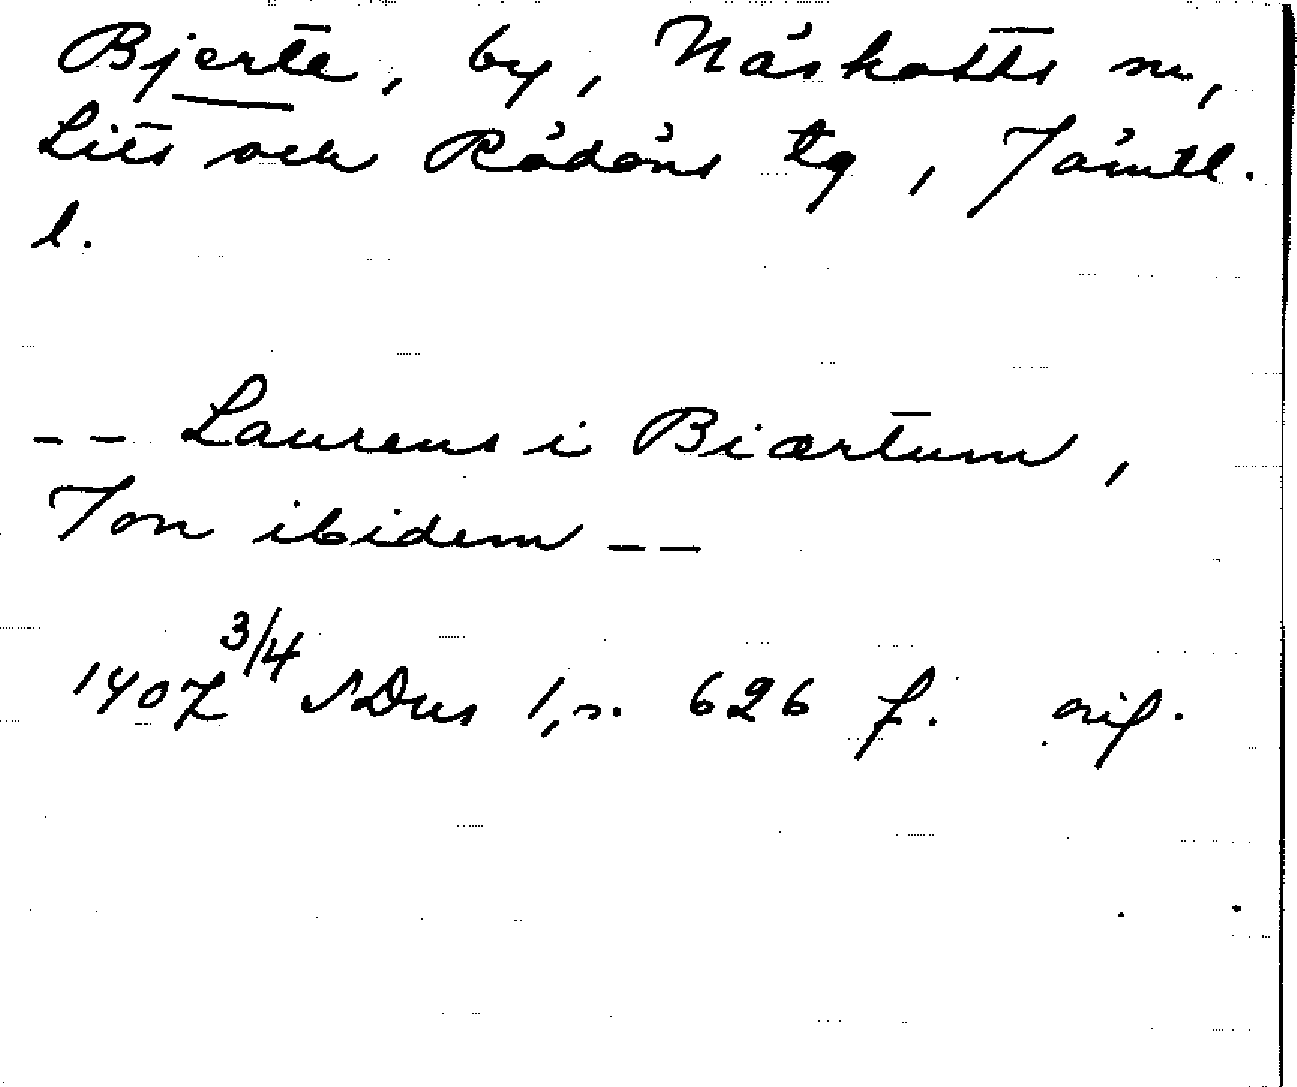 Bjerte, by, Näskotts sn,
Lits och Rödöns tg, Jämtl.
l.
-- Laurens i Biærtum,
Jon ibidem --
1407 3/4 SDns 1, s. 626 f. orig.